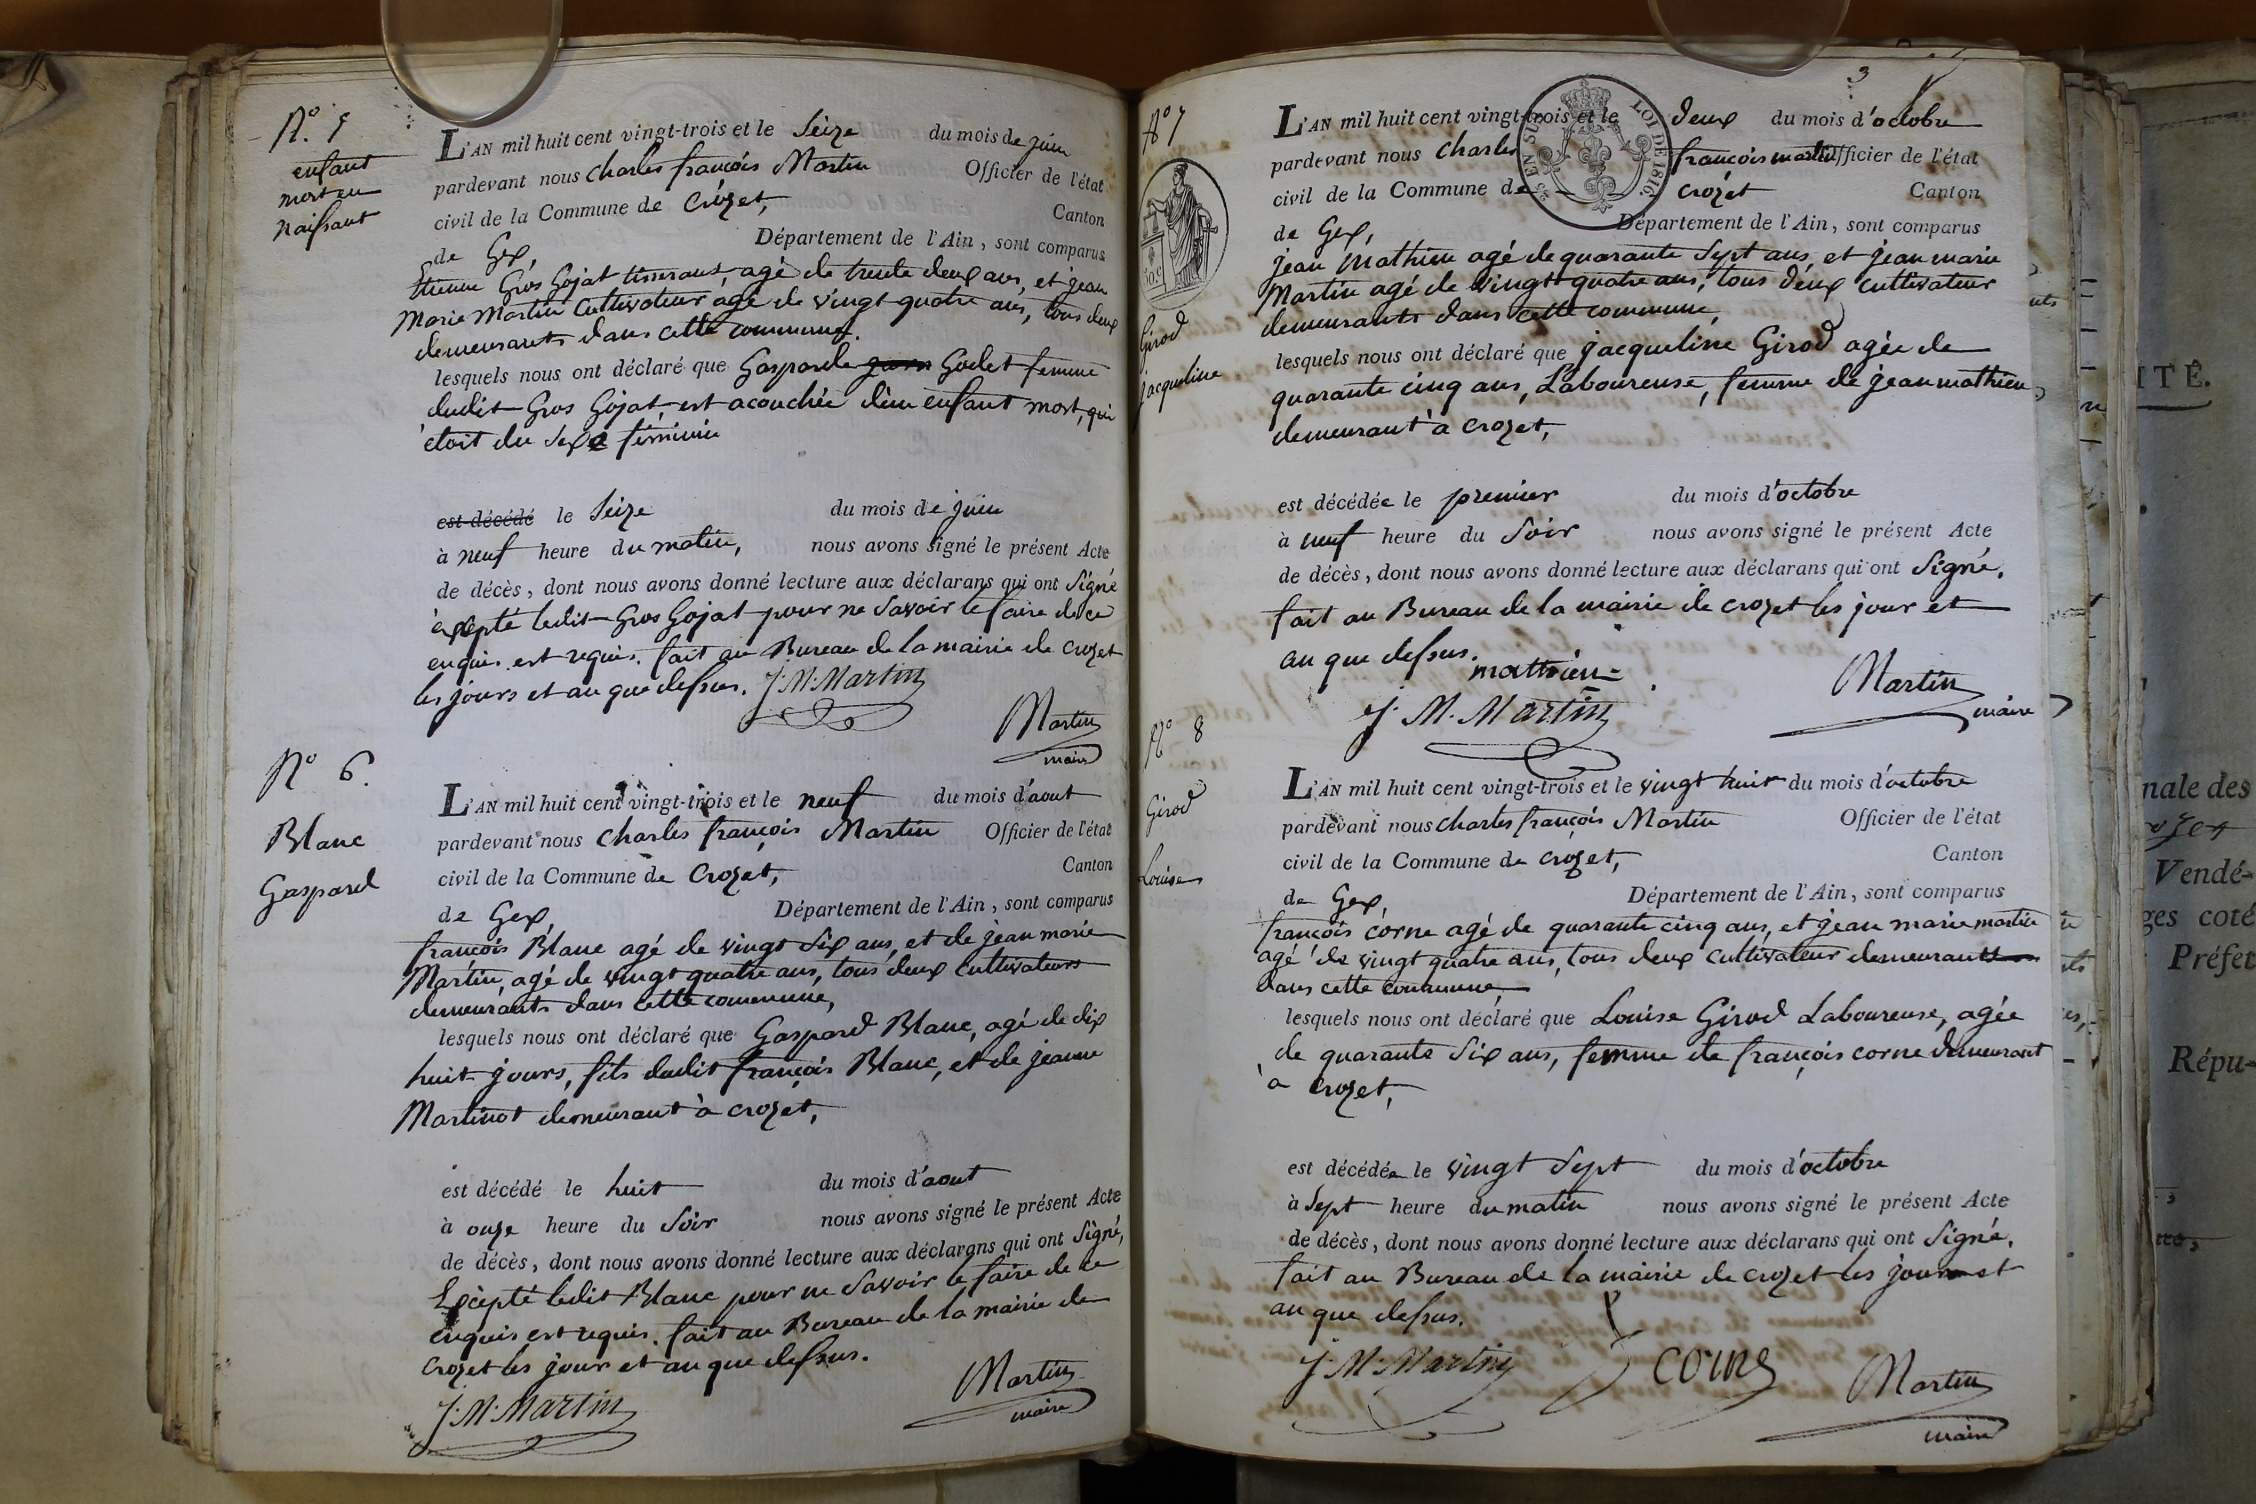 N.º 5
enfant
mort en
naissant
L'AN mil huit cent vingt-trois et le Seize du mois de juin
pardevant nous charles françois Martin Officier de l'état
civil de la Commune de Crozet, Canton
de Gex, Département de l'Ain, sont comparus
Etienne Gros Gojat tisserant, agé de trente deux ans, et jean
Marie Martin Cultivateur agé de vingt quatre ans, tous deux
demeurants dans cette commune.
lesquels nous ont déclaré que Gasparde Godet femme
dudit Gros Gojat, est acouchée d'un enfant mort, qui
étoit du sexe féminin
est décédé le Seize du mois de juin
à neuf heure du matin, nous avons signé le présent Acte
de décès, dont nous avons donné lecture aux déclarans qui ont Signé
èxepté ledit Gros Gojat pour ne savoir le faire de ce
enquis est requis. fait au Bureau de la mairie de Crozet
les jours et an que dessus. J. M. Martin
Martin
maire
Nº 6.
Blanc
Gaspard
L'AN mil huit cent vingt-trois et le neuf du mois d'aout
pardevant nous charles françois Martin Officier de l'état
civil de la Commune de Crozet, Canton
de Gex, Département de l'Ain, sont comparus
françois Blanc agé de vingt Six ans, et de jean marie
Martin, agé de vingt quatre ans, tous deux cultivateurs
demeurants dans cette commune,
lesquels nous ont déclaré que Gaspard Blanc, agé de dix
huit jours, fils dudit françois Blanc, et de jeanne
Martinot demeurant à crozet,
est décédé le huit du mois d'aout
à onze heure du Soir nous avons signé le présent Acte
de décès, dont nous avons donné lecture aux déclarans qui ont Signé,
Excèpté ledit Blanc pour ne savoir le faire de ce
enquis est requis. fait au Bureau de la mairie de
crozet les jour et an que dessus.
J. M. Martin
Martin
maire
3
Nº 7
Girod
jacqueline
25 EN SUS
LOI DE 1816.
L'AN mil huit cent vingt-trois et le deux du mois d'octobre
pardevant nous Charles françois martin Officier de l'état
civil de la Commune de crozet Canton
de Gex, Département de l'Ain, sont comparus
jean Mathieu agé de quarante Sept ans, et jean marie
Martin agé de vingt quatre ans, tous deux cultivateur
demeurants dans cette commune,
lesquels nous ont déclaré que jacqueline Girod agée de
quarante cinq ans, Laboureuse, femme de jean mathieu
demeurant à crozet,
est décédée le premier du mois d'octobre
à neuf heure du Soir nous avons signé le présent Acte
de décès, dont nous avons donné lecture aux déclarans qui ont Signé.
fait au Bureau de la mairie de crozet les jour et
an que dessus.
mathieu
J. M. Martin
Martin
maire
Nº 8
Girod
Louise
L'AN mil huit cent vingt-trois et le vingt huit du mois d'octobre
pardevant nous charles françois Martin Officier de l'état
civil de la Commune de crozet, Canton
de Gex, Département de l'Ain, sont comparus
françois corne agé de quarante cinq ans, et jean marie martin
agé de vingt quatre ans, tous deux cultivateur demeurants
dans cette commune,
lesquels nous ont déclaré que Louise Girod Laboureuse, agée
de quarante Six ans, femme de françois corne demeurant
à crozet,
est décédée le vingt Sept du mois d'octobre
à Sept heure du matin nous avons signé le présent Acte
de décès, dont nous avons donné lecture aux déclarans qui ont Signé.
fait au Bureau de la mairie de crozet les jour et
an que dessus.
J. M. Martin
Martin
maire
ITÉ.
nale des
Vendé-
ges coté
Préfet
Répu-